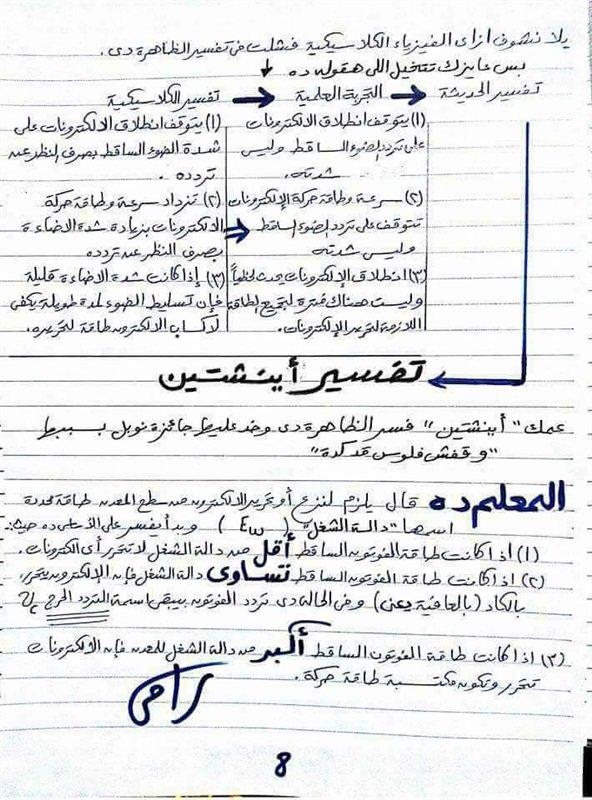 يلا نشوف ازاى الفيزياء الكلاسيكية فشلت فى تفسير الظاهرة دى.
بس عايزك تتخيل اللى هقوله ده ↓
تفسير الحديثة → التجربة العلمية → تفسير الكلاسيكية
(١) يتوقف انطلاق الالكترونات
على تردد الضوء الساقط وليس
شدته.
(٢) سرعة وطاقة حركة الإلكترونات
تتوقف على تردد الضوء الساقط
وليس شدته
(٣) انطلاق الإلكترونات يحدث لحظياً
وليست هناك فترة لتجميع الطاقة
اللازمة لتحرير الإلكترونات.
(١) يتوقف انطلاق الالكترونات على
شدة الضوء الساقط بصرف النظر عن
تردده.
(٢) تزداد سرعة وطاقة حركة
الالكترونات بزيادة شدة الاضاءة
بصرف النظر عن تردده
(٣) إذا كانت شدة الاضاءة قليلة
فإن تسليط الضوء لمدة طويلة يكفى
لاكساب الالكترون طاقة لتحرره.
تفسير أينشتين
عمك "أينشتين" فسر الظاهرة دى وخد عليها جائزة نوبل بسببها
"وقفش فلوس قد كدة"
المعلم ده قال يلزم لنزع أو تحرير الالكترون من سطح المعدن طاقة محددة
اسمها "دالة الشغل" (Ew) وبدأ يفسر على الأساس ده حيث:
(١) اذا كانت طاقة الفوتون الساقط أقل من دالة الشغل لا تتحرر أى الكترونات.
(٢) اذا كانت طاقة الفوتون الساقط تساوى دالة الشغل فإن الإلكترون يتحرر
بالكاد (بالعافية يعنى) وفى الحالة دى تردد الفوتون بيبقى اسمة التردد الحرج
(٣) اذا كانت طاقة الفوتون الساقط أكبر من دالة الشغل للمعدن فإن الالكترونات
تتحرر وتكون مكتسبة طاقة حركة.
8